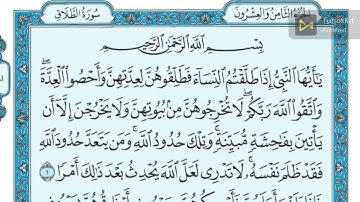 سُورَةُ الطَّلَاقِ
الجُزْءُ الثَّامِنُ وَالعِشْرُونَ
بِسْمِ اللَّهِ الرَّحْمَٰنِ الرَّحِيمِ
يَٰٓأَيُّهَا النَّبِيُّ إِذَا طَلَّقْتُمُ النِّسَآءَ فَطَلِّقُوهُنَّ لِعِدَّتِهِنَّ وَأَحْصُوا الْعِدَّةَ ۖ
وَاتَّقُوا اللَّهَ رَبَّكُمْ ۖ لَا تُخْرِجُوهُنَّ مِنۢ بُيُوتِهِنَّ وَلَا يَخْرُجْنَ إِلَّآ أَن
يَأْتِينَ بِفَٰحِشَةٍ مُّبَيِّنَةٍ ۚ وَتِلْكَ حُدُودُ اللَّهِ ۚ وَمَن يَتَعَدَّ حُدُودَ اللَّهِ
فَقَدْ ظَلَمَ نَفْسَهُۥ ۚ لَا تَدْرِي لَعَلَّ اللَّهَ يُحْدِثُ بَعْدَ ذَٰلِكَ أَمْرًا ١